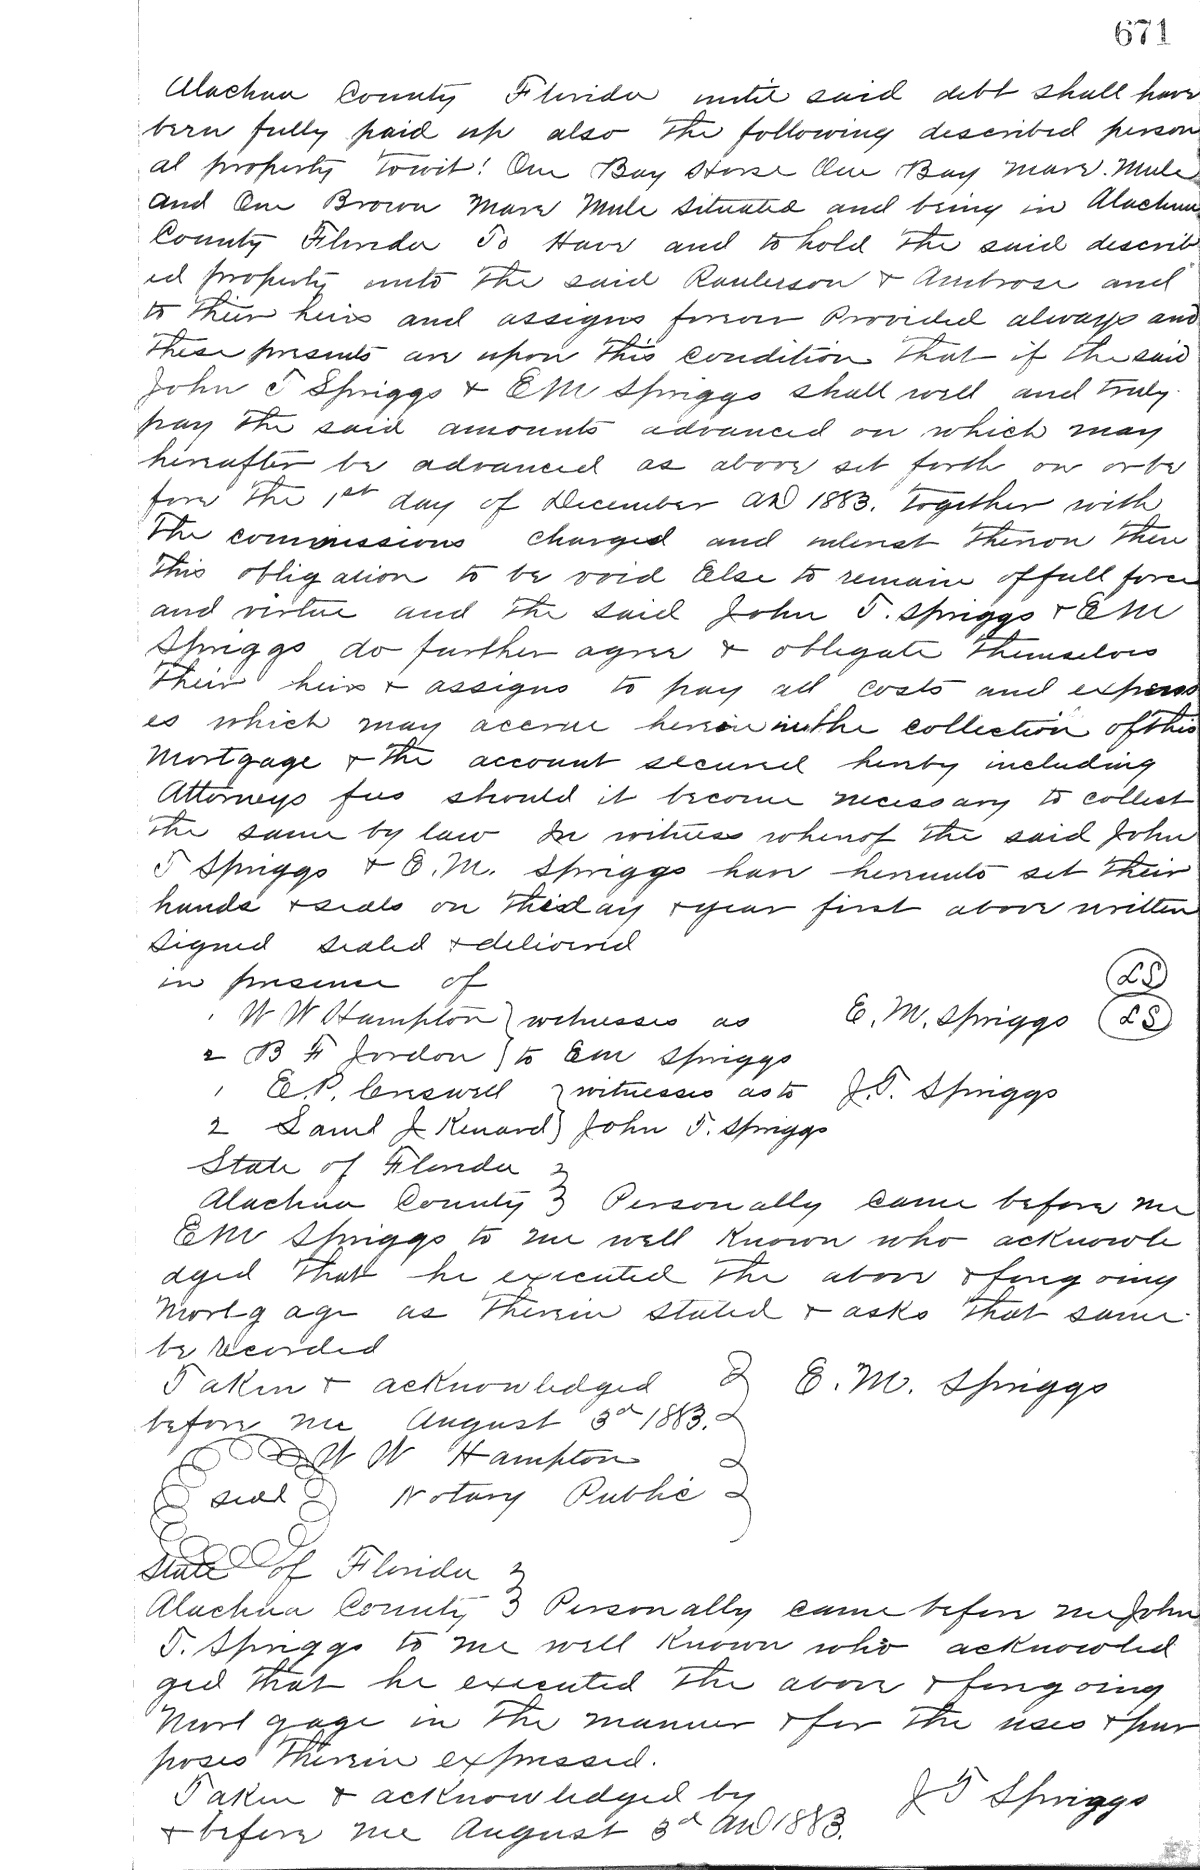 671
Alachua County Florida until said debt shall have
been fully paid up also the following described person
al property towit! One Bay Horse One Bay Mare. Mule
and One Brown Mare Mule situated and being in Alachua
County Florida To Have and to hold the said describ
ed property unto the said Raulerson & Ambrose and
to their heirs and assigns forever Provided always and
these presents are upon this condition that if the said
John T Spriggs & E M Spriggs shall well and truly
pay the said amounts advanced or which may
hereafter be advanced as above set forth on or be
fore the 1st day of December AD 1883. together with
the commissions charged and interest thereon then
this obligation to be void Else to remain of full force
and virtue and the said John T. Spriggs & E M
Spriggs do further agree & obligate themselves
their heirs & assigns to pay all costs and expens
es which may accrue herein in the collection of this
Mortgage & the account secured hereby including
Attorneys fees should it become necessary to collect
the same by law In witness whereof the said John
T Spriggs & E. M. Spriggs have hereunto set their
hands & seals on this day & year first above written
signed sealed & delivered
in presence of LS
1 W W Hampton } witnesses as E. M. Spriggs LS
2 B F Jordon } to E M Spriggs
1 E. P. Creswell } witnesses as to J. T. Spriggs
2 Saml J Kenard } John T. Spriggs
State of Florida }
Alachua County } Personally came before me
E M Spriggs to me well known who acknowle
dged that he executed the above & foregoing
Mortgage as therein stated & asks that same
be recorded
Taken & acknowledged } E. M. Spriggs
before me August 3d 1883.
W W Hampton
seal Notary Public
State of Florida }
Alachua County } Personally came before me John
T. Spriggs to me well known who acknowled
ged that he executed the above & foregoing
Mortgage in the manner & for the uses & pur
poses therein expressed.
Taken & acknowledged by J T Spriggs
& before me August 3d AD 1883.